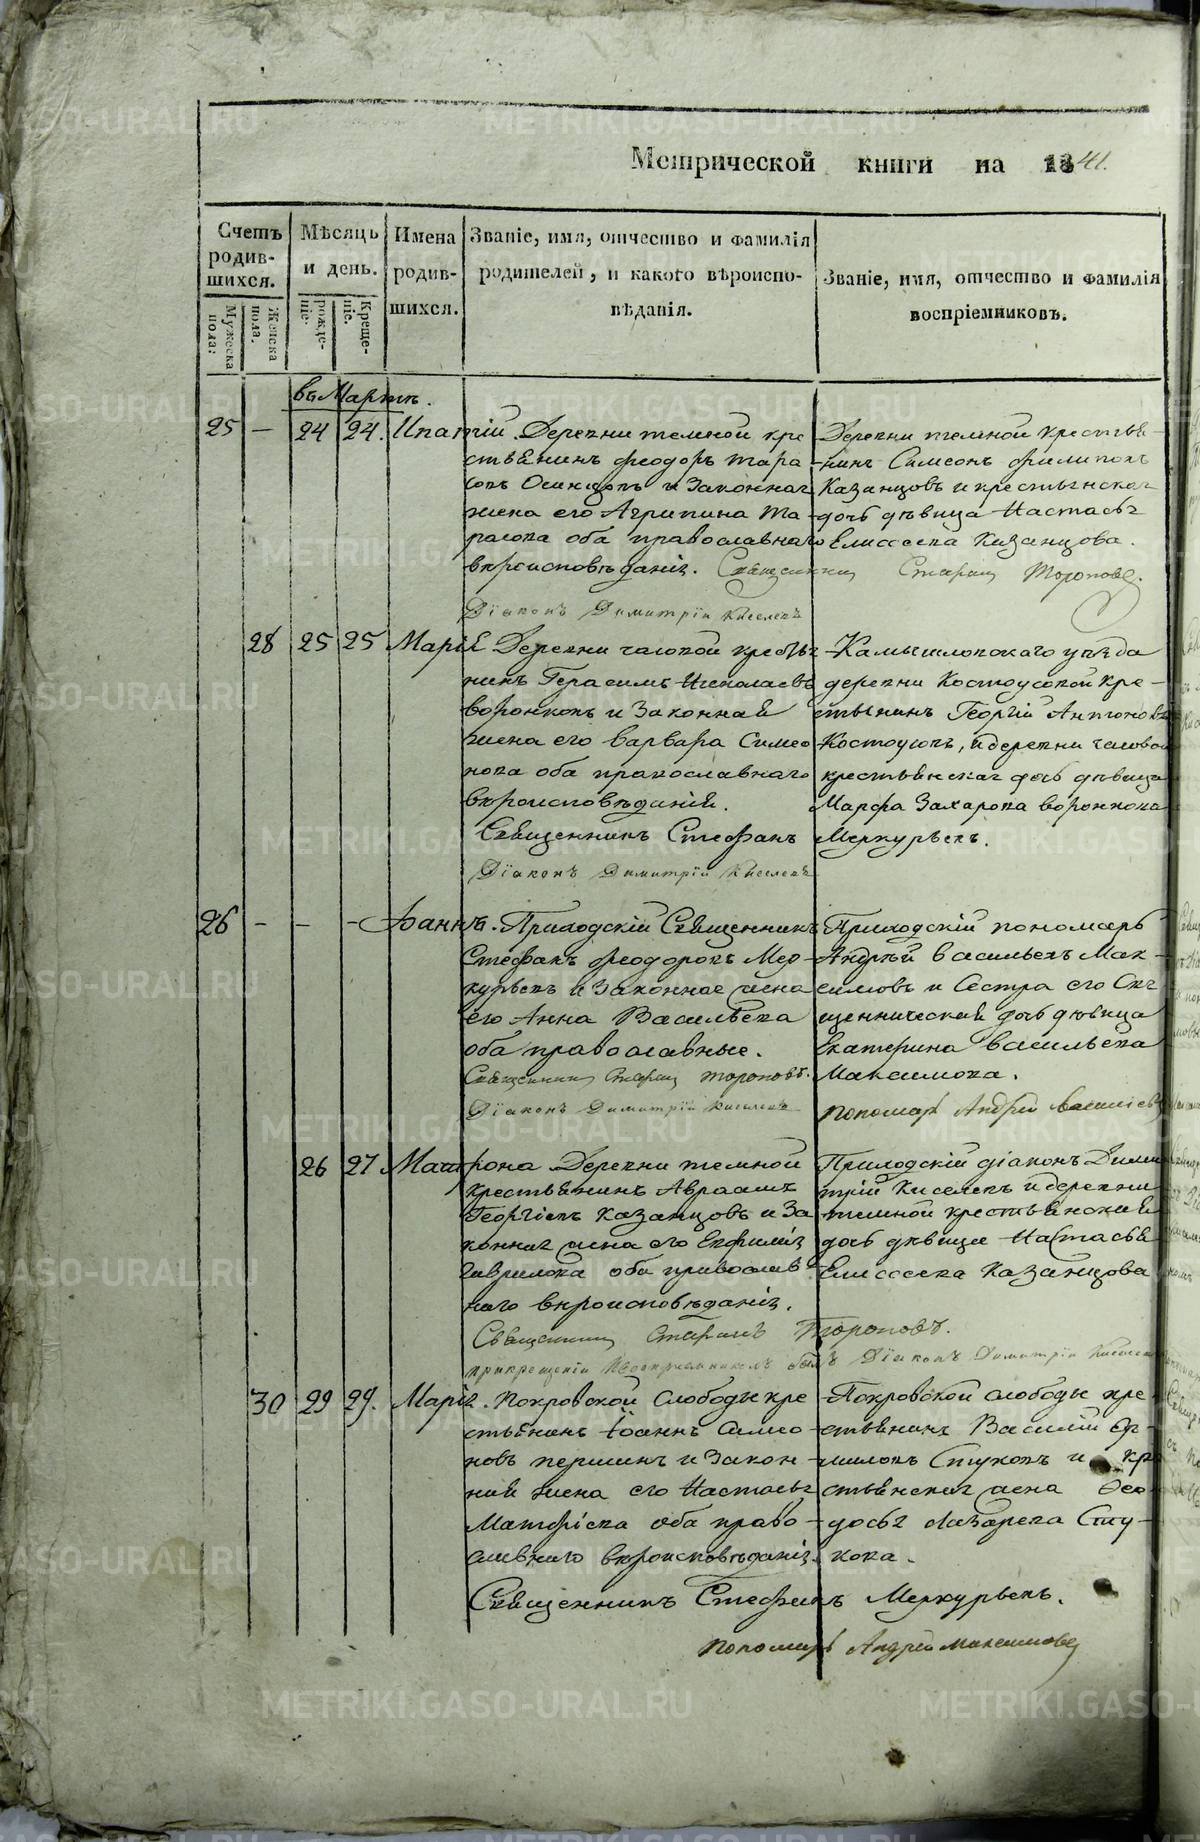 Метрической книги на 1841.
Счетъ родив-шихся.
Мужеска пола.
Женска пола.
Мѣсяцъ и день.
рожде-ніе.
Креще-ніе.
Имена родив-шихся.
Званіе, имя, отчество и фамилія
родителей, и какого вѣроиспо-
вѣданія.
Званіе, имя, отчество и фамилія
воспріемниковъ.
въ Мартѣ.
25 — 24 24. Ипатій. Деревни темной кре
ствянинъ Феодоръ Тара
совъ Осинцовъ и Законная
жена его Агрипина Та-
расова оба православнаго
вѣроисповѣданія. Священникъ Стефанъ Тороповъ.
Діаконъ Димитрій Киселевъ
Деревни темной крестья-
нинъ Симеонъ Филиповъ
Казанцовъ и крестьянская
дочь дѣвица Настасья
Елисеева Казанцова.
28 25 25 Марія Деревни часовой крестья
нинъ Герасимъ Николаевъ
воронковъ и Законная
жена его варвара Симео
нова оба православнаго
вѣроисповѣданія.
Священникъ Стефанъ Меркурьевъ.
Діаконъ Димитрій Киселевъ
Камышловскаго уѣзда
деревни Костоусовой кре-
стьянинъ Георгій Антоновъ
Костоусовъ, и деревни часовой
крестьянская дочь дѣвица
Марфа Захарова воронкова
26 — — — Іоаннъ. Приходскій Священникъ
Стефанъ Феодоровъ Мер-
курьевъ и Законная жена
его Анна Васильева
оба православные.
Священникъ Стефанъ Тороповъ.
Діаконъ Димитрій Киселевъ
Приходскій пономарь
Андрей васильевъ Мак-
симовъ и Сестра его Свя
щенническая дочь дѣвица
Екатерина васильева
Максимова.
пономарь Андрей
26 27 Матрона Деревни темной
крестьянинъ Авраамъ
Георгіевъ Казанцовъ и За
конная жена его Евфимія
Гаврилова оба православ
наго вѣроисповѣданія.
Священникъ Стефанъ Тороповъ.
прикрещеніи воспріемникомъ былъ Діаконъ Димитрій Киселевъ
Приходскій діаконъ Дими
трій Киселевъ и деревни
темной крестьянская
дочь дѣвица Настасья
Елисеева Казанцова
30 29 29. Марія. Покровской Слободы кре
стьянинъ Іоаннъ Симео
новъ першинъ и Закон-
ная жена его Настасья
Матфіева оба право-
славнаго вѣроисповѣданія.
Священникъ Стефанъ Меркурьевъ.
пономарь Андрей Максимовъ
Покровской слободы кре-
стьянинъ Василій
Стуковъ и кре
стьянская жена Ѳео-
досья Лазарева Сту-
кова.
METRIKI.GASO-URAL.RU